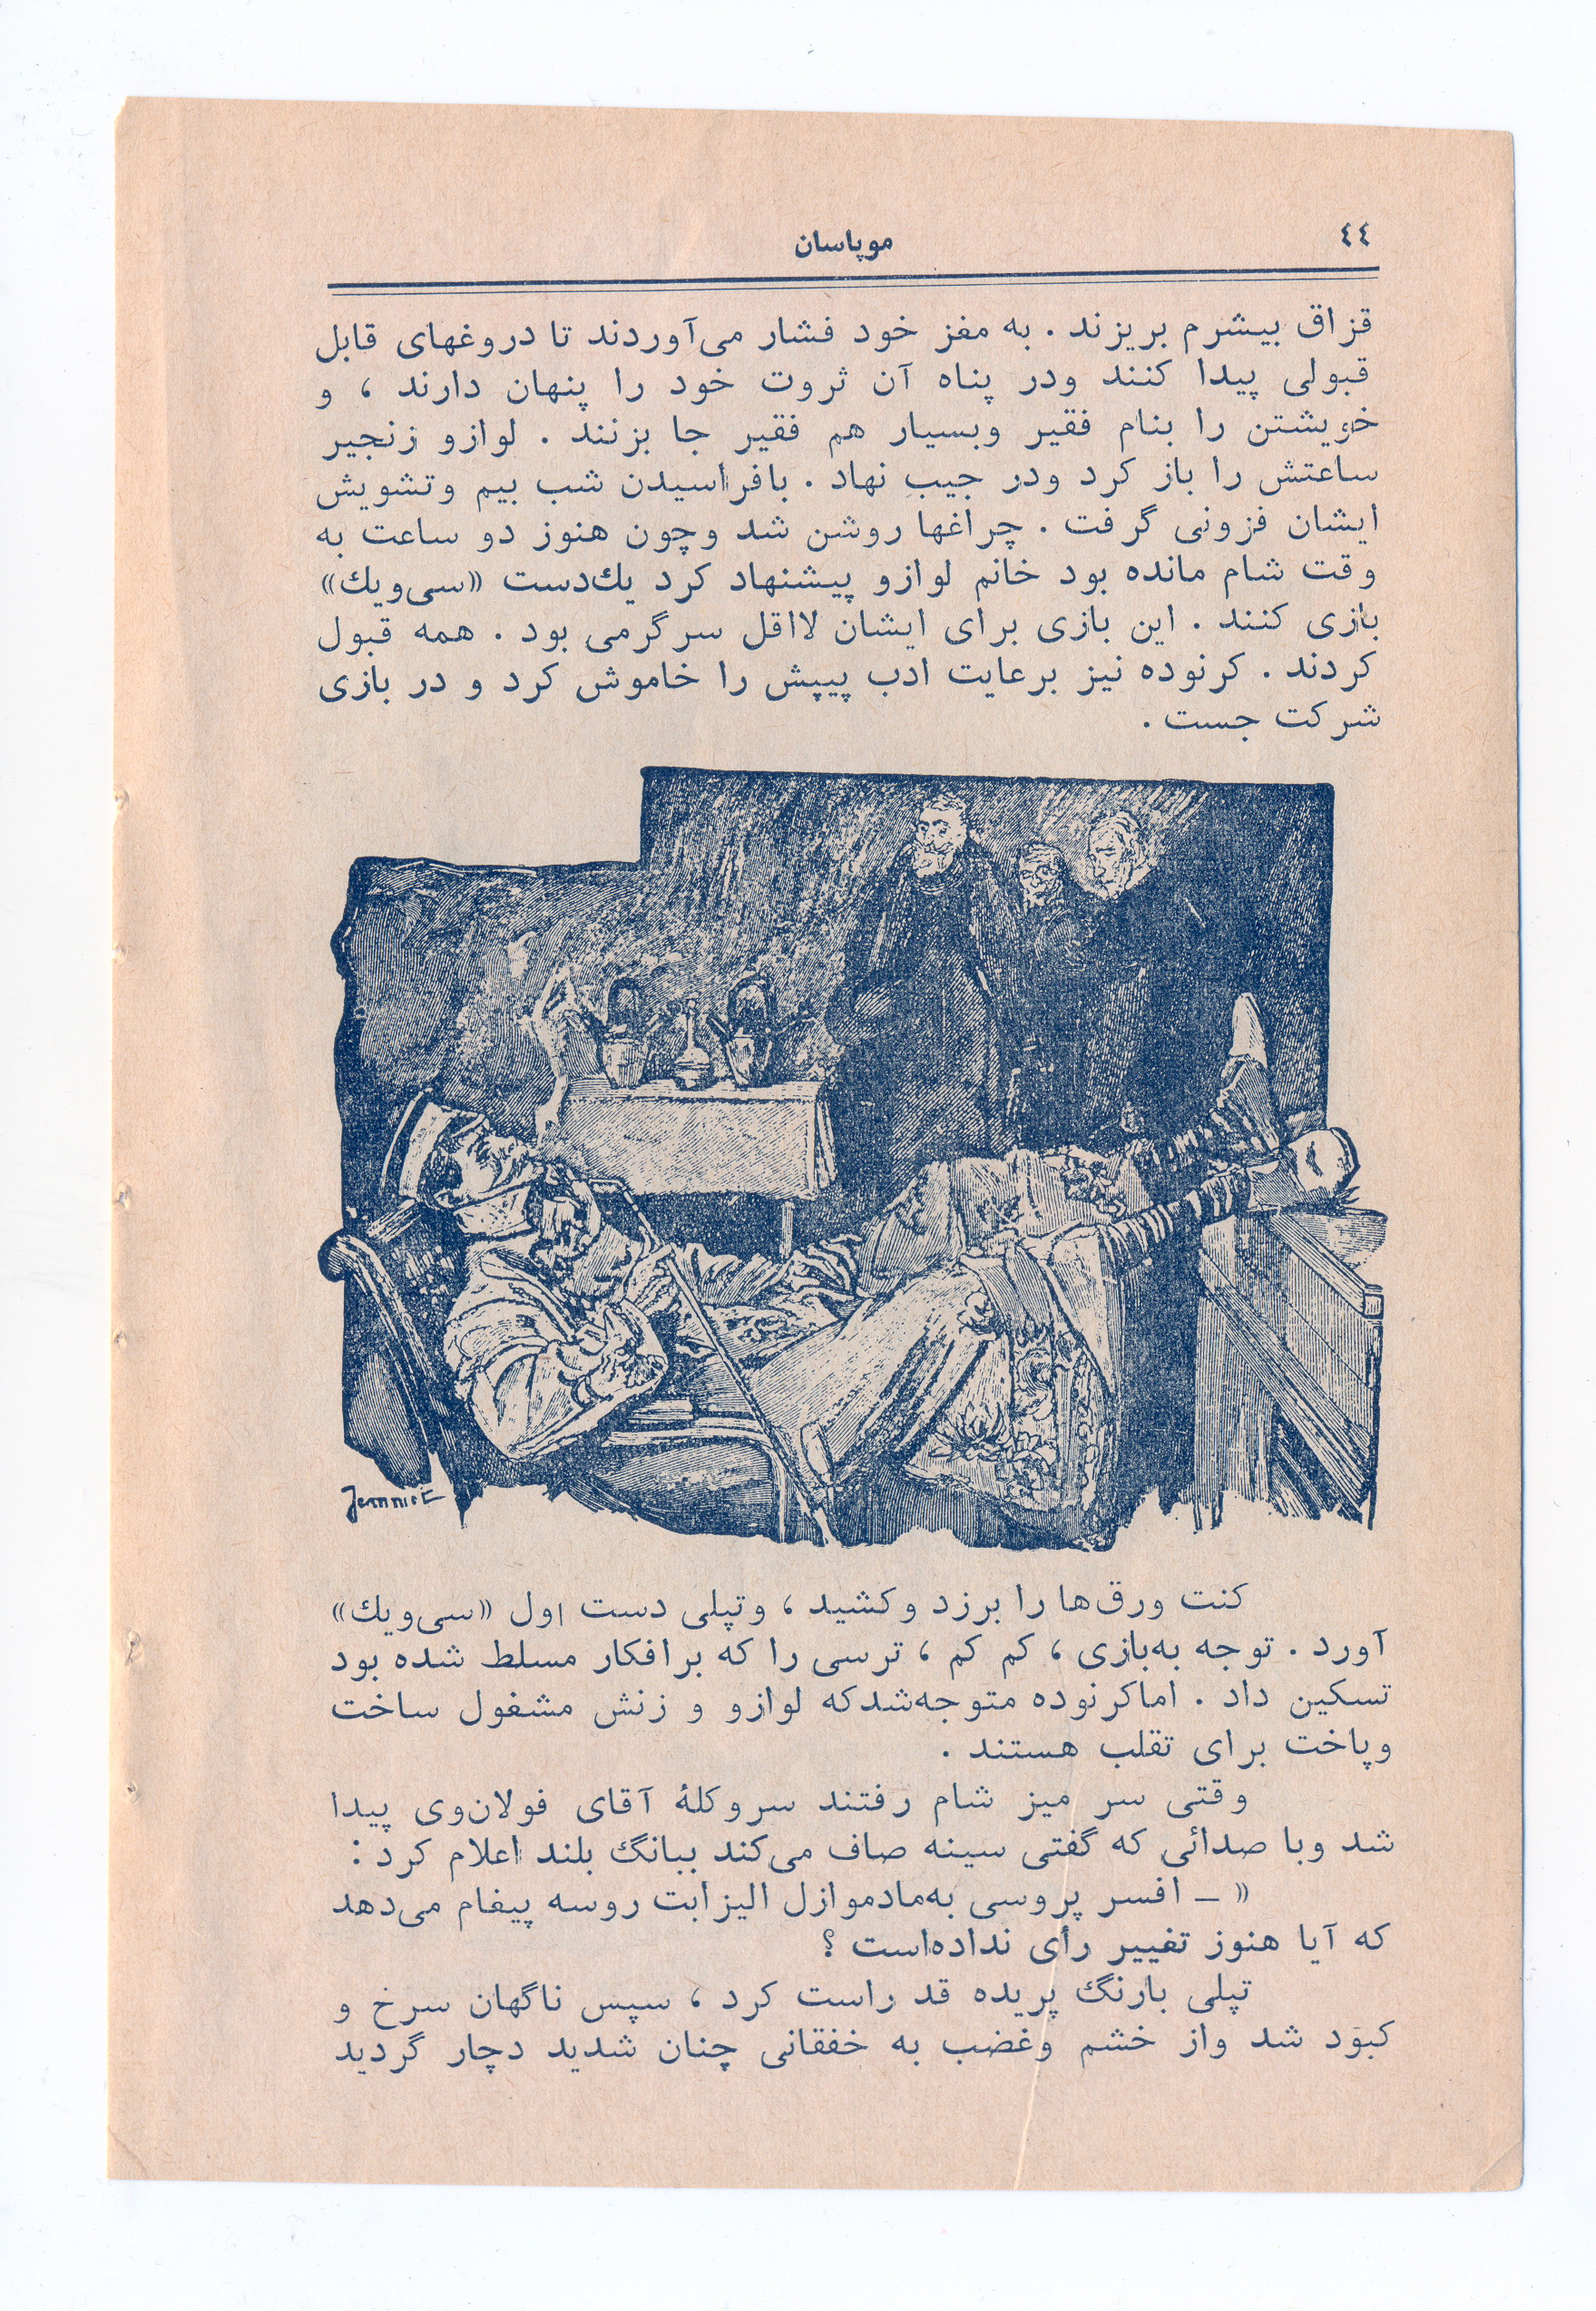 ٤٤
موپاسان
قزاق بیشرم بریزند . به مغز خود فشار می‌آوردند تا دروغهای قابل
قبولی پیدا کنند ودر پناه آن ثروت خود را پنهان دارند ، و
خویشتن را بنام فقیر وبسیار هم فقیر جا بزنند . لوازو زنجیر
ساعتش را باز کرد ودر جیب نهاد . بافراسیدن شب بیم وتشویش
ایشان فزونی گرفت . چراغها روشن شد وچون هنوز دو ساعت به
وقت شام مانده بود خانم لوازو پیشنهاد کرد یك‌دست «سی‌ویك»
بازی کنند . این بازی برای ایشان لااقل سرگرمی بود . همه قبول
کردند . کرنوده نیز برعایت ادب پیپش را خاموش کرد و در بازی
شرکت جست .
Jeanniot
کنت ورق‌ها را برزد وکشید ، وتپلی دست اول «سی‌ویك»
آورد . توجه به‌بازی ، کم کم ، ترسی را که برافکار مسلط شده بود
تسکین داد . اماکرنوده متوجه‌شدکه لوازو و زنش مشغول ساخت
وپاخت برای تقلب هستند .
وقتی سر میز شام رفتند سروکلهٔ آقای فولان‌وی پیدا
شد وبا صدائی که گفتی سینه صاف می‌کند ببانگ بلند اعلام کرد :
« – افسر پروسی به‌مادموازل الیزابت روسه پیغام می‌دهد
که آیا هنوز تغییر رأی نداده‌است ؟
تپلی بارنگ پریده قد راست کرد ، سپس ناگهان سرخ و
کبود شد واز خشم وغضب به خفقانی چنان شدید دچار گردید